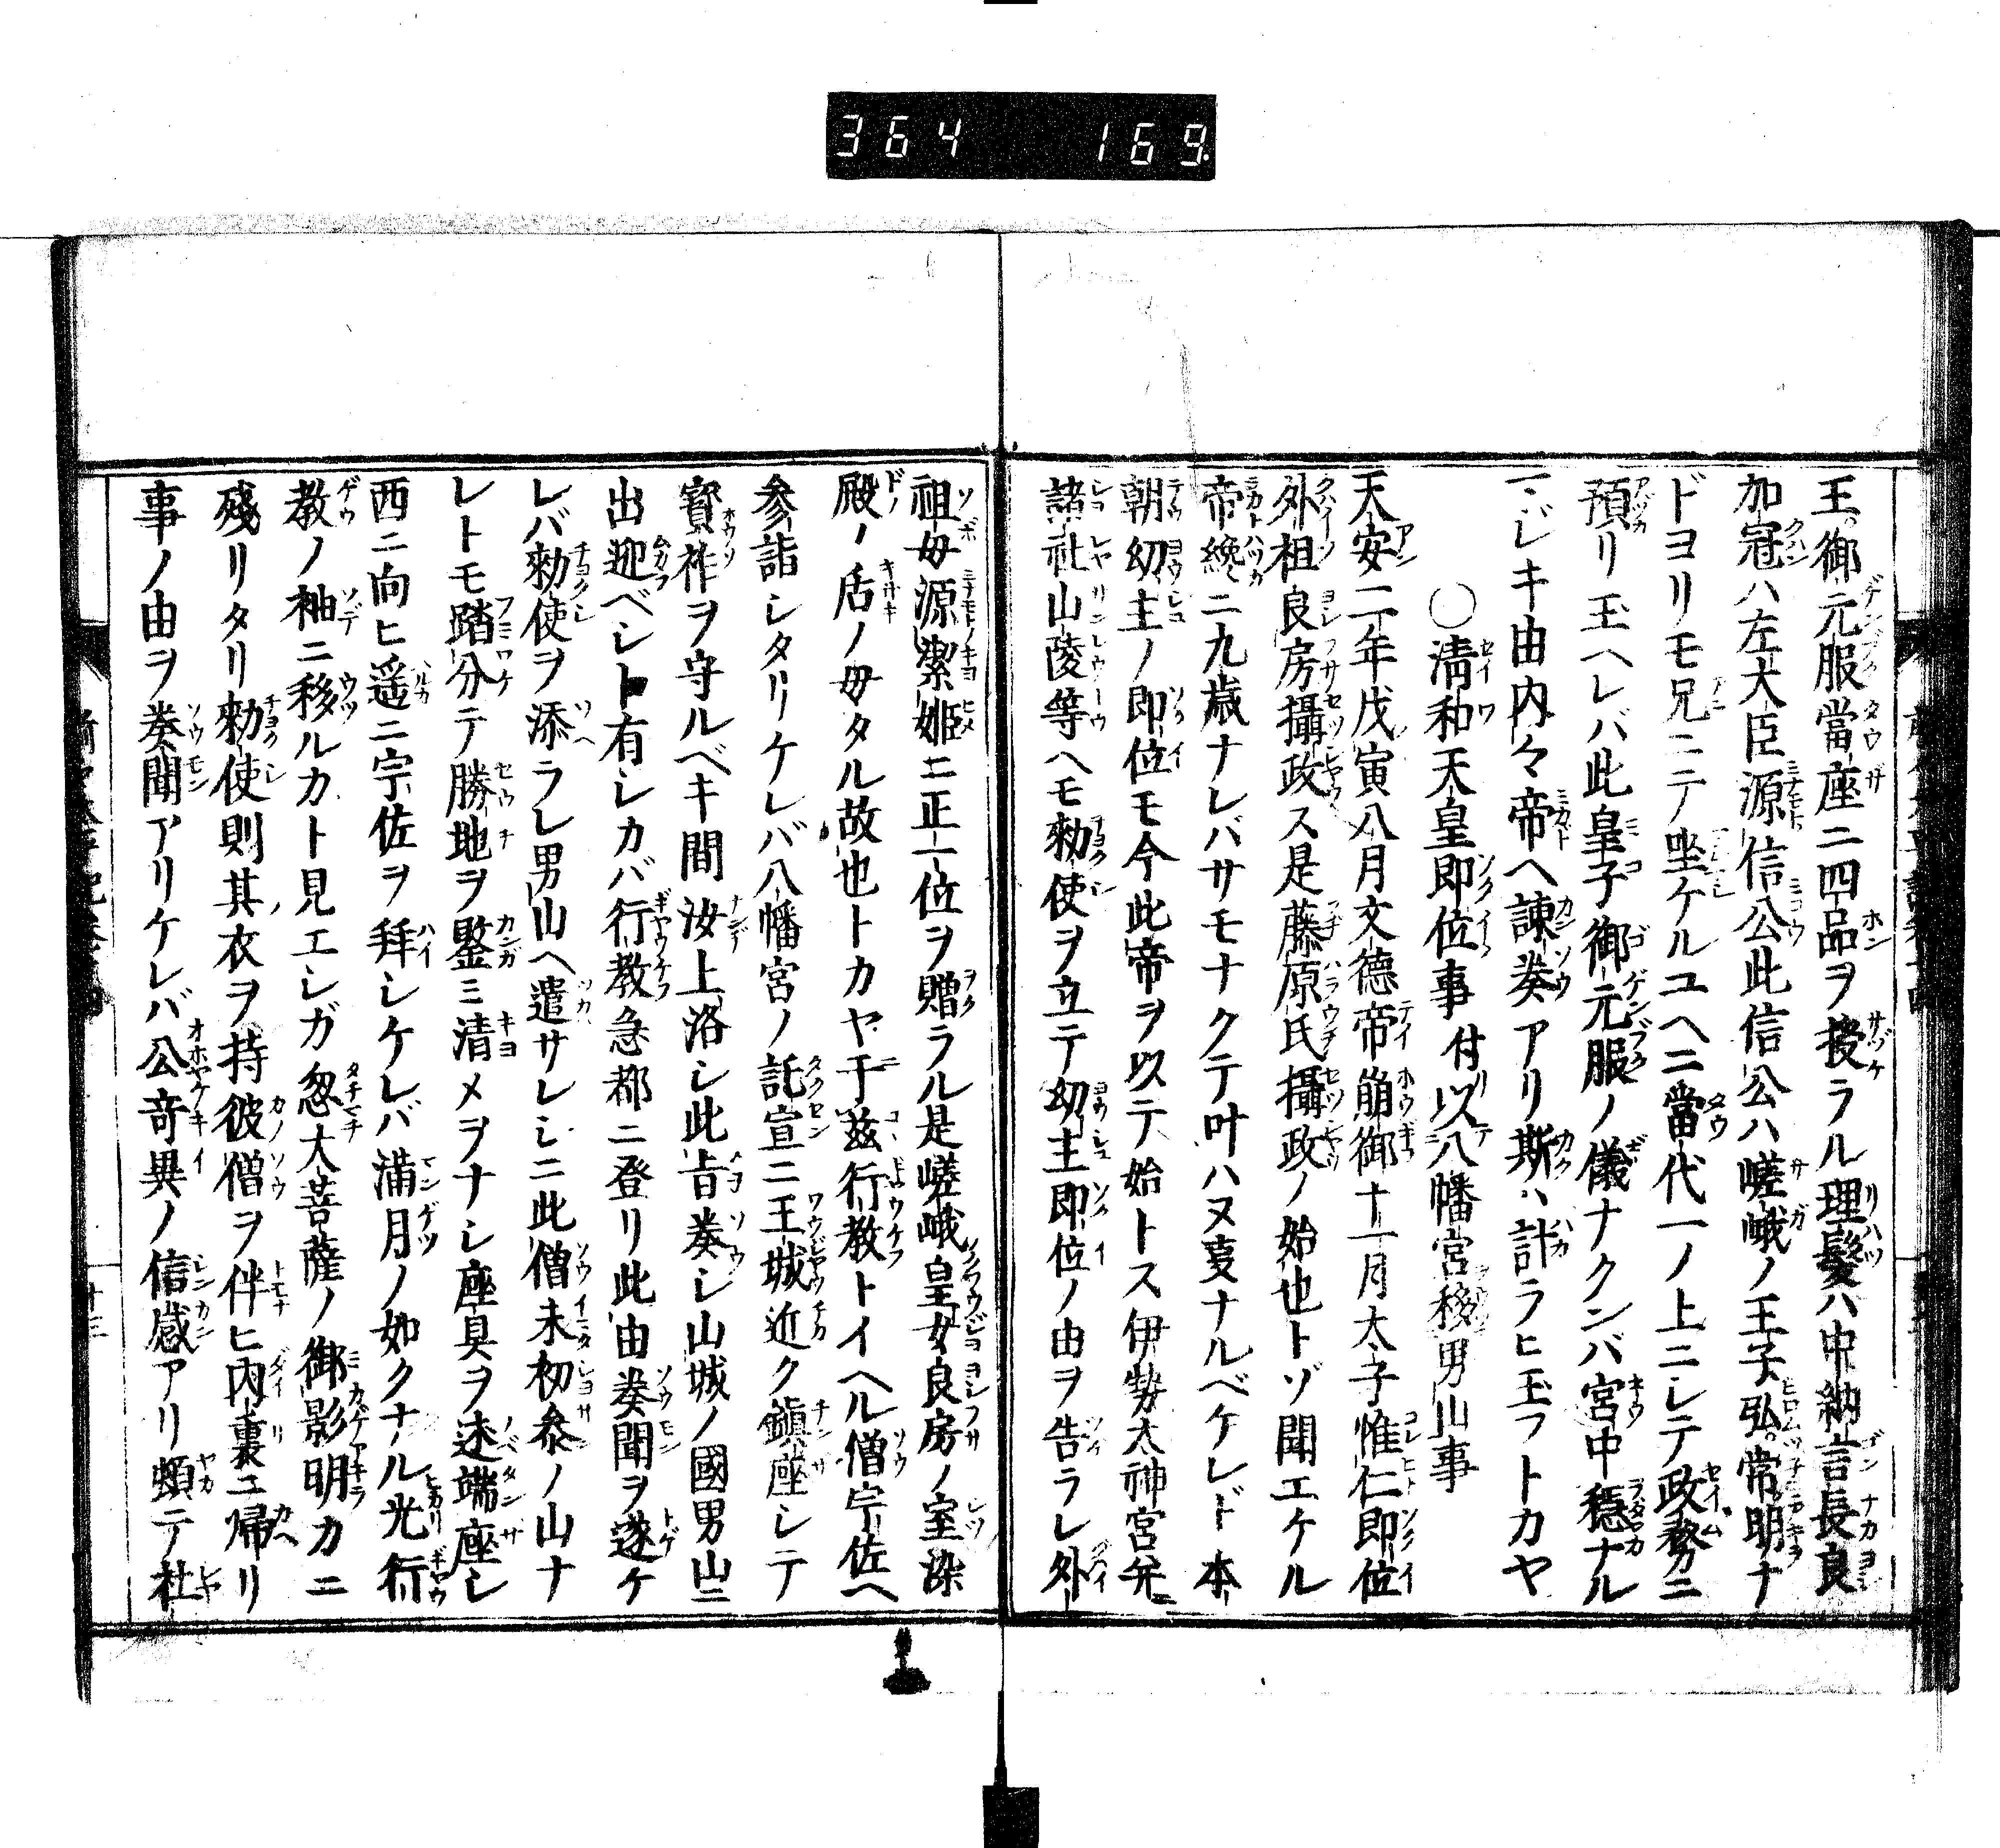 364 169
王。御元服當座ニ四品ヲ授ラル理髮ハ中納言長良
加冠ハ左大臣源信公此信公ハ嵯峨ノ王子弘。常明ナ
ドヨリモ兄ニテ坐ケルユヘニ當代一ノ上ニシテ政務ニ
預リ玉ヘレバ此皇子御元服ノ儀ナクンバ宮中穩ナル
マジキ由内々帝ヘ諫奏アリ斯ハ計ラヒ玉フトカヤ
○淸和天皇即位事付以八幡宮移男山事
天安二年戊寅八月文德帝崩御十一月太子惟仁即位
外祖良房攝政ス是藤原氏攝政ノ始也トゾ聞エケル
帝纔ニ九歳ナレバサモナクテ叶ハヌ㕝ナルベケレド本
朝幼主ノ即位モ今此帝ヲ以テ始トス伊勢太神宮并ニ
諸社山陵等ヘモ勅使ヲ立テ幼主即位ノ由ヲ告ラレ外
祖母源潔姬ニ正一位ヲ贈ラル是嵯峨皇女良房ノ室染
殿ノ后ノ母タル故也トカヤ于茲行教トイヘル僧宇佐ヘ
参詣シタリケレバ八幡宮ノ託宣ニ王城近ク鎭座シテ
寳祚ヲ守ルベキ間汝上洛シ此旨奏シ山城ノ國男山ニ
出迎ベシト有シカバ行教急都ニ登リ此由奏聞ヲ遂ケ
レバ勅使ヲ添ラレ男山ヘ遣サレシニ此僧未初参ノ山ナ
レトモ踏分テ勝地ヲ鑒ミ清メヲナシ座具ヲ述端座シ
西ニ向ヒ遥ニ宇佐ヲ拜シケレバ滿月ノ如クナル光行
教ノ袖ニ移ルカト見エシガ忽大菩薩ノ御影明カニ
殘リタリ勅使則其衣ヲ持彼僧ヲ伴ヒ内裏エ帰リ
事ノ由ヲ奏聞アリケレバ公竒異ノ信感アリ頓テ社
十三